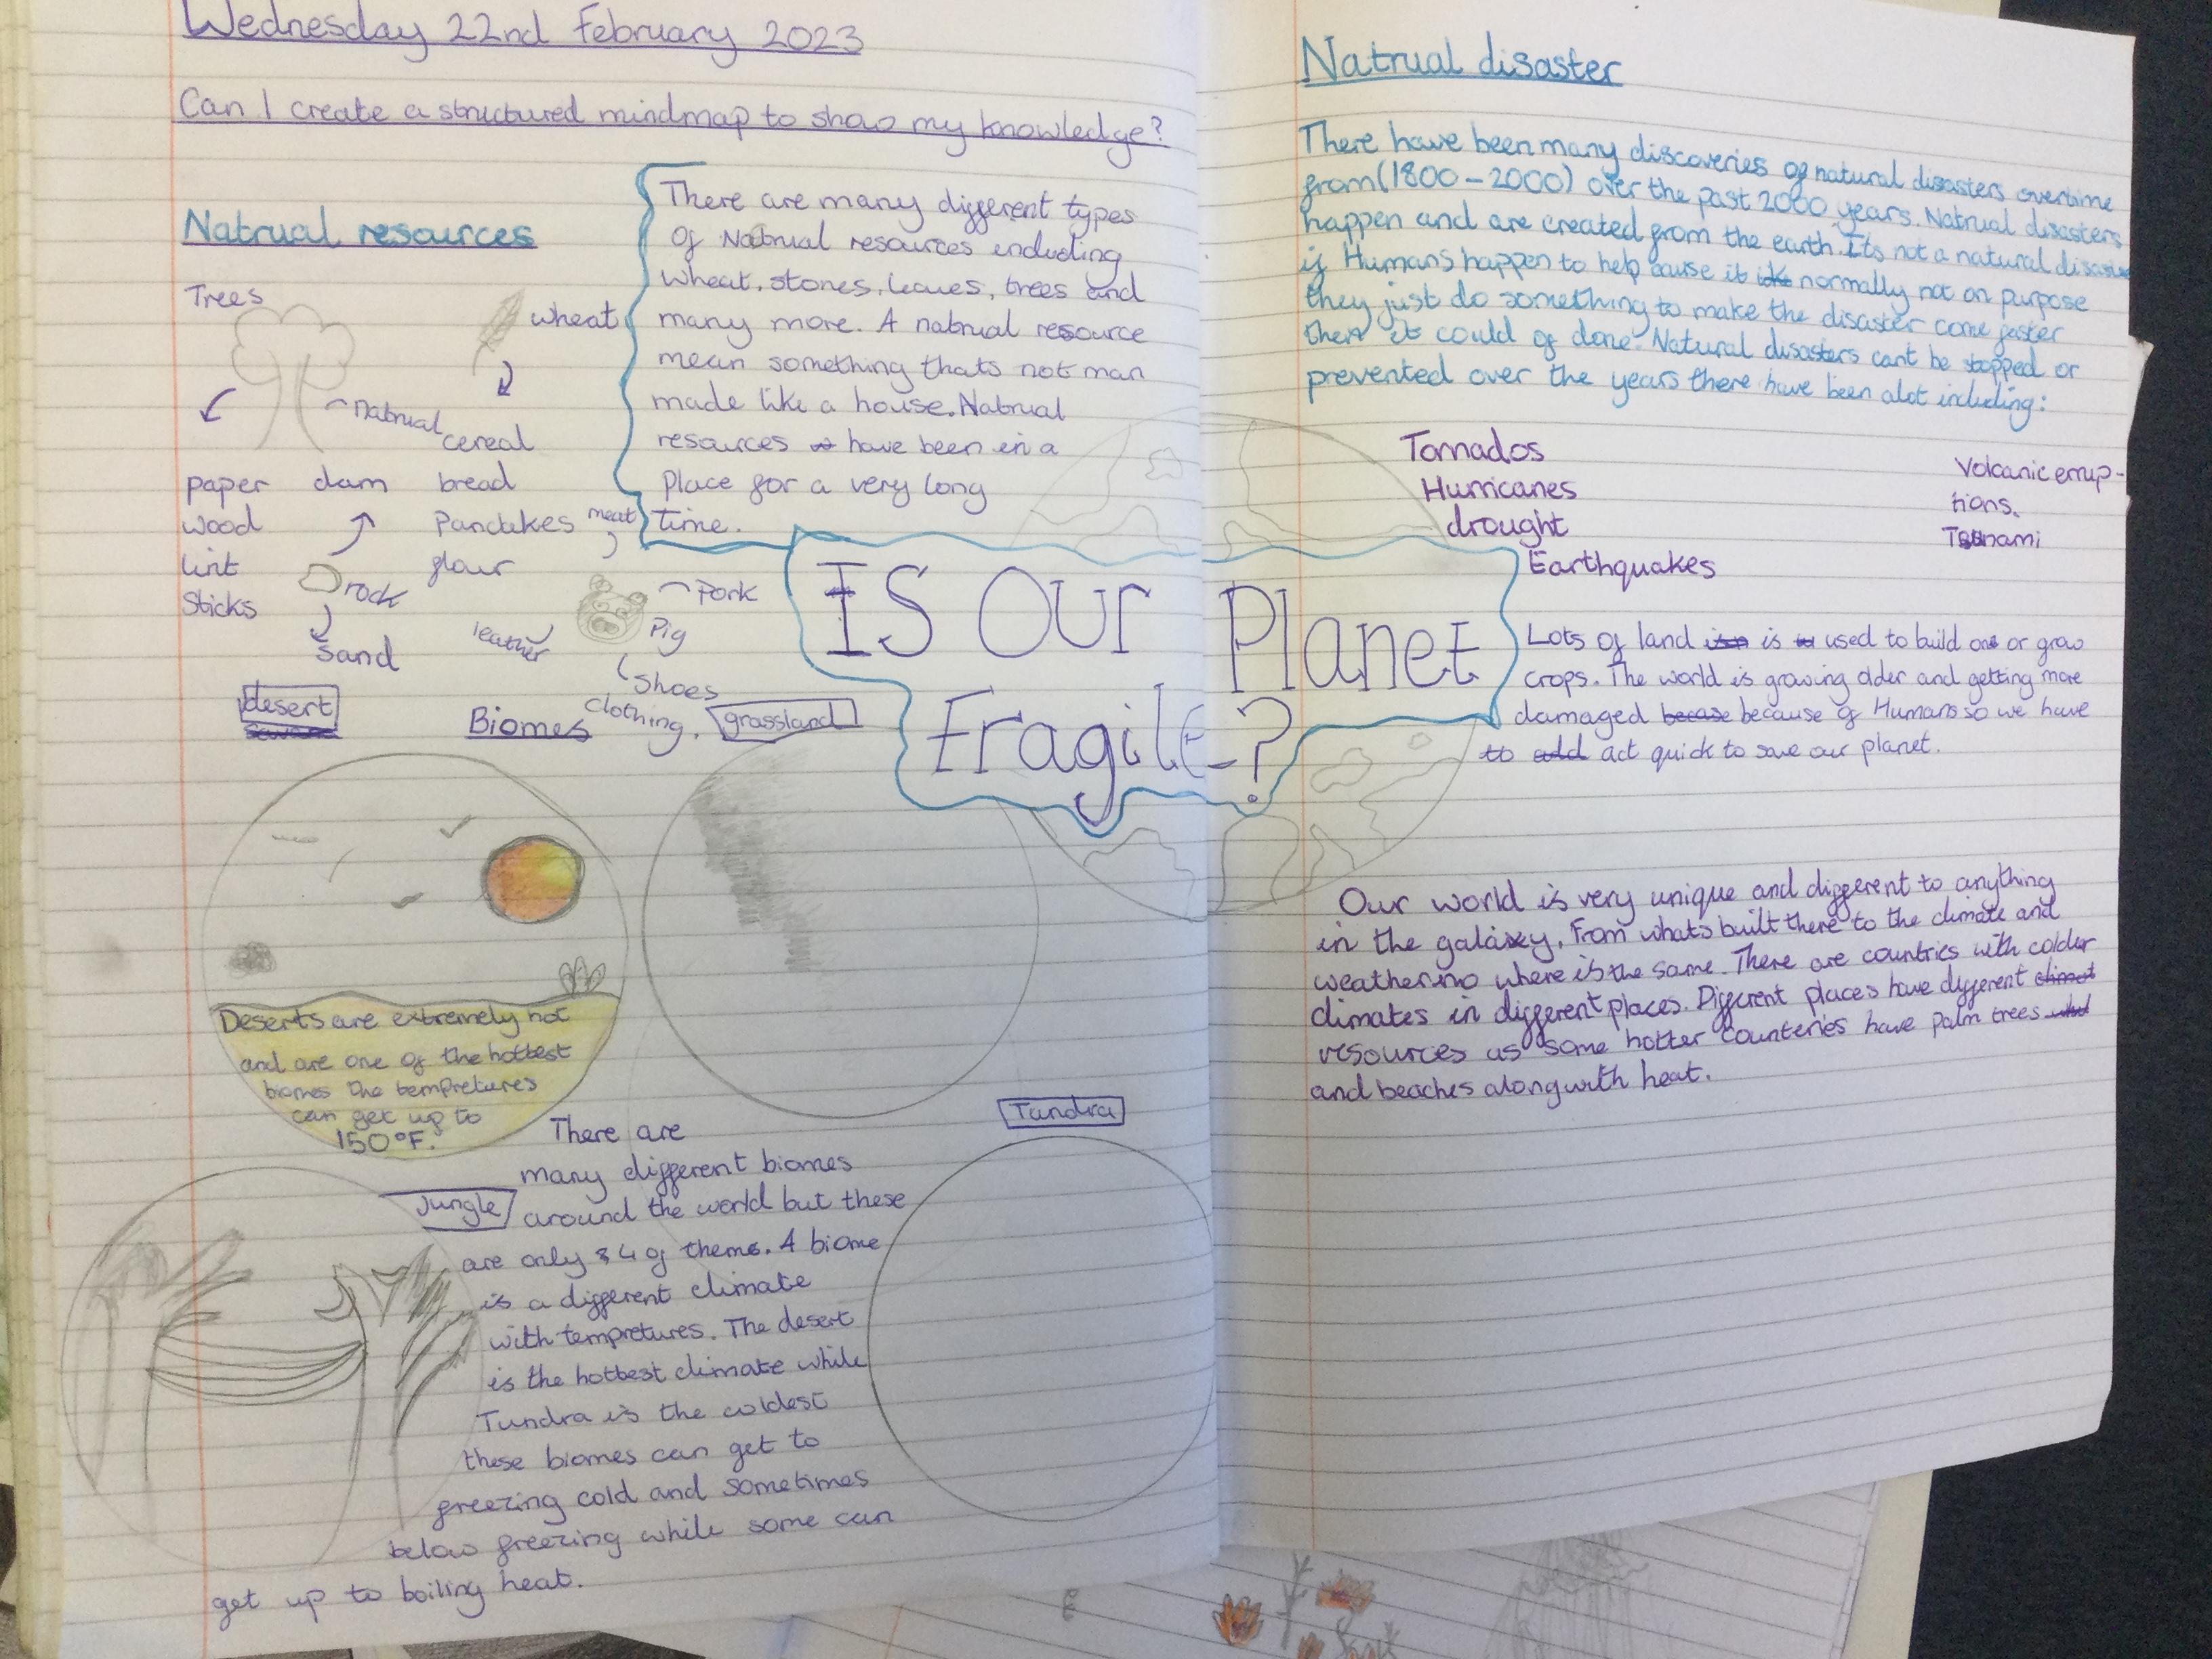 Wednesday 22nd February 2023
Can I create a structured mindmap to show my knowledge?
Natrual resources
Trees
wheat
Natrual
cereal
paper dam bread
wood Pancakes meat
lint flour
rock
Sticks
Sand
leather
Pork
Pig
Shoes
clothing.
There are many different types
of Natrual resources including
wheat, stones, leaves, trees and
many more. A natrual resource
mean something thats not man
made like a house. Natrual
resources have been in a
Place for a very long
time.
Is Our Planet
Fragile?
desert
Biomes
grassland
Deserts are extremely hot
and are one of the hottest
biomes the tempretures
can get up to
150°F.
Jungle
Tundra
There are
many different biomes
around the world but these
are only 4 of them. A biome
is a different climate
with tempretures. The desert
is the hottest climate while
Tundra is the coldest
these biomes can get to
freezing cold and sometimes
below freezing while some can
get up to boiling heat.
Natrual disaster
There have been many discoveries of natural disasters overtime
from (1800-2000) over the past 2000 years. Natrual disasters
happen and are created from the earth. Its not a natural disaster
if Humans happen to help cause it normally not on purpose
they just do something to make the disaster come faster
then it could of done. Natural disasters cant be stopped or
prevented over the years there have been alot including:
Tornados
Hurricanes
drought
Earthquakes
Volcanic errup-
tions.
Tsunami
Lots of land is used to build on or grow
crops. The world is growing older and getting more
damaged because of Humans so we have
to act quick to save our planet.
Our world is very unique and different to anything
in the galaxy. From whats built there to the climate and
weather no where is the same. There are countries with colder
climates in different places. Different places have different
resources as some hotter counteries have palm trees
and beaches along with heat.